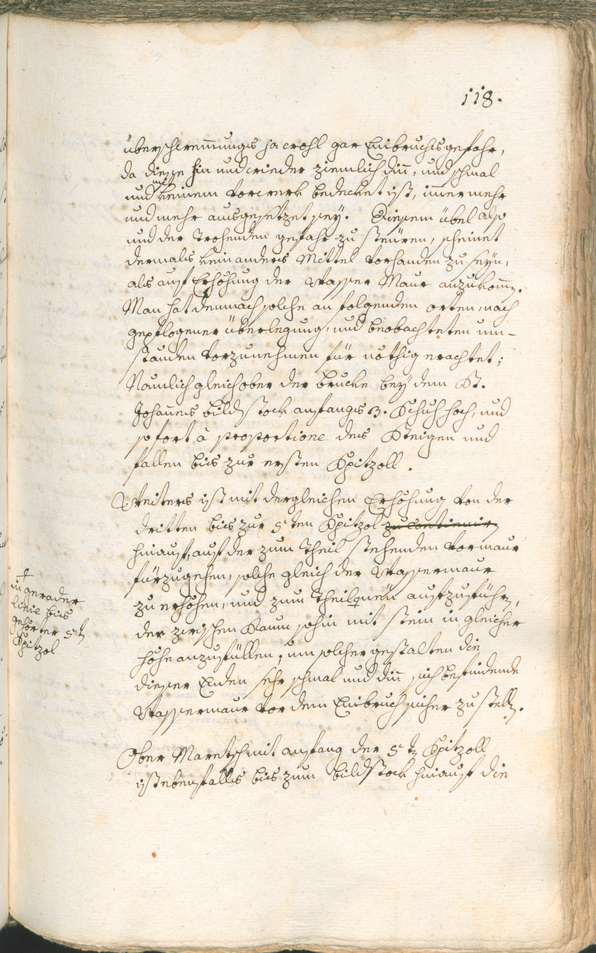 118.
überschwemmungs ja wohl gar Einbruchsgefahr,
da diese hin und wieder ziemlich dün, und schmal
und mit keinem vorwerk bedecket ist, immer mehr
und mehr ausgesetzet sey. Diesem übel also
und der trohenden gefahr zu steüren, scheinet
dermalls kein anders Mittel vorhanden zu seyn,
als auf Erhöhung der Wasser Maur anzukomen.
Man hat demnach solche an folgenden orten, nach
gepflogener überlegung, und beobachteten um-
ständen vorzunehmen für nöthig erachtet;
Nämlich gleich ober der brucke bey dem St.
Johanes bildstock anfangs 3. Schuh hoch, und
so fort à proportione des Steigen und
fallen bis zur ersten Spitzoll.
Weiters ist mit dergleichen Erhöhung von der
dritten bis zur 5ten Spitzol zu continuirn
hinauf, auf der zum theil stehenden vormaur
fürzugehen, solche gleich der Wassermaur
zu erhöhen, und zum theil auszuführn,
der zwischen Raum sohin mit stein in gleicher
höhe anzufüllen, um solcher gestalten die
dieser Enden sehr schmal und dün sich befindende
Wassermaur vor dem Einbruch sicher zu stelln.
Ober Maretsch mit anfang der 5tn Spitzoll
ist ebenfalls bis zum bildstock hinauf die
in gerader
linie bis
gehörter 5tn
Spitzol